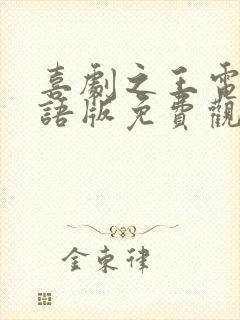 喜劇之王電
語版免費觀
金東律